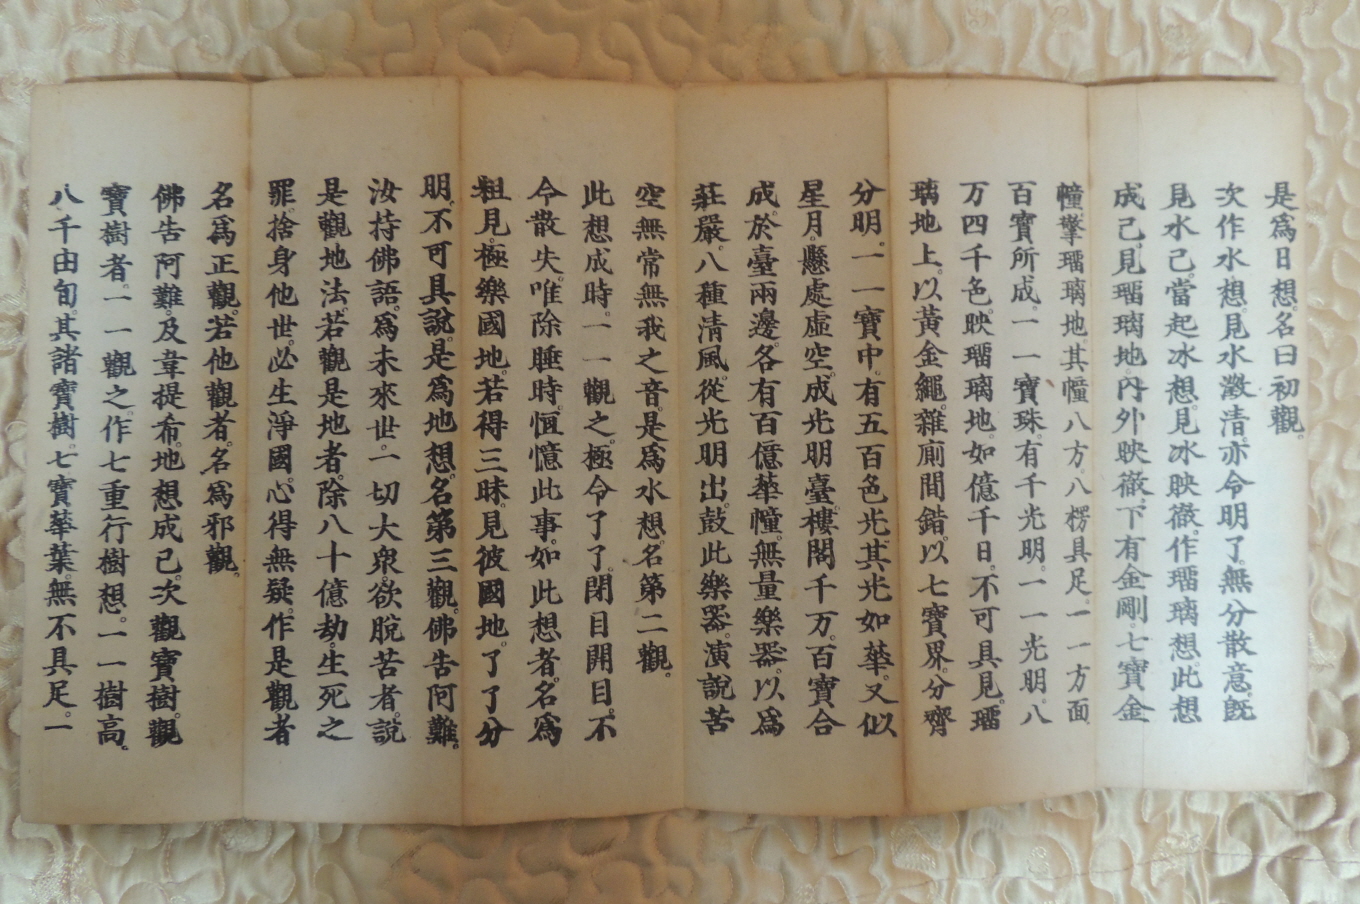 是爲日想。名曰初觀。
次作水想。見水澂清。亦令明了。無分散意。旣
見水己。當起冰想。見冰映徹。作瑠璃想。此想
成己。見瑠璃地。內外映徹。下有金剛。七寶金
幢。擎瑠璃地。其幢八方。八楞具足。一一方面。
百寶所成。一一寶珠。有千光明。一一光明。八
万四千色。映瑠璃地。如億千日。不可具見。瑠
璃地上。以黃金繩。雜廁間錯。以七寶界。分齊
分明。一一寶中。有五百色光。其光如華。又似
星月。懸處虛空。成光明臺。樓閣千万。百寶合
成。於臺兩邊。各有百億華幢。無量樂器。以爲
莊嚴。八種清風。從光明出。鼓此樂器。演說苦
空無常無我之音。是爲水想。名第二觀。
此想成時。一一觀之。極令了了。閉目開目。不
令散失。唯除睡時。恒憶此事。如此想者。名爲
粗見。極樂國地。若得三昧。見彼國地。了了分
明。不可具說。是爲地想。名第三觀。佛告阿難。
汝持佛語。爲未來世。一切大衆。欲脫苦者。說
是觀地法。若觀是地者。除八十億劫。生死之
罪。捨身他世。必生淨國。心得無疑。作是觀者
名爲正觀。若他觀者。名爲邪觀。
佛告阿難。及韋提希。地想成己。次觀寶樹。觀
寶樹者。一一觀之。作七重行樹想。一一樹高。
八千由旬。其諸寶樹。七寶華葉。無不具足。一